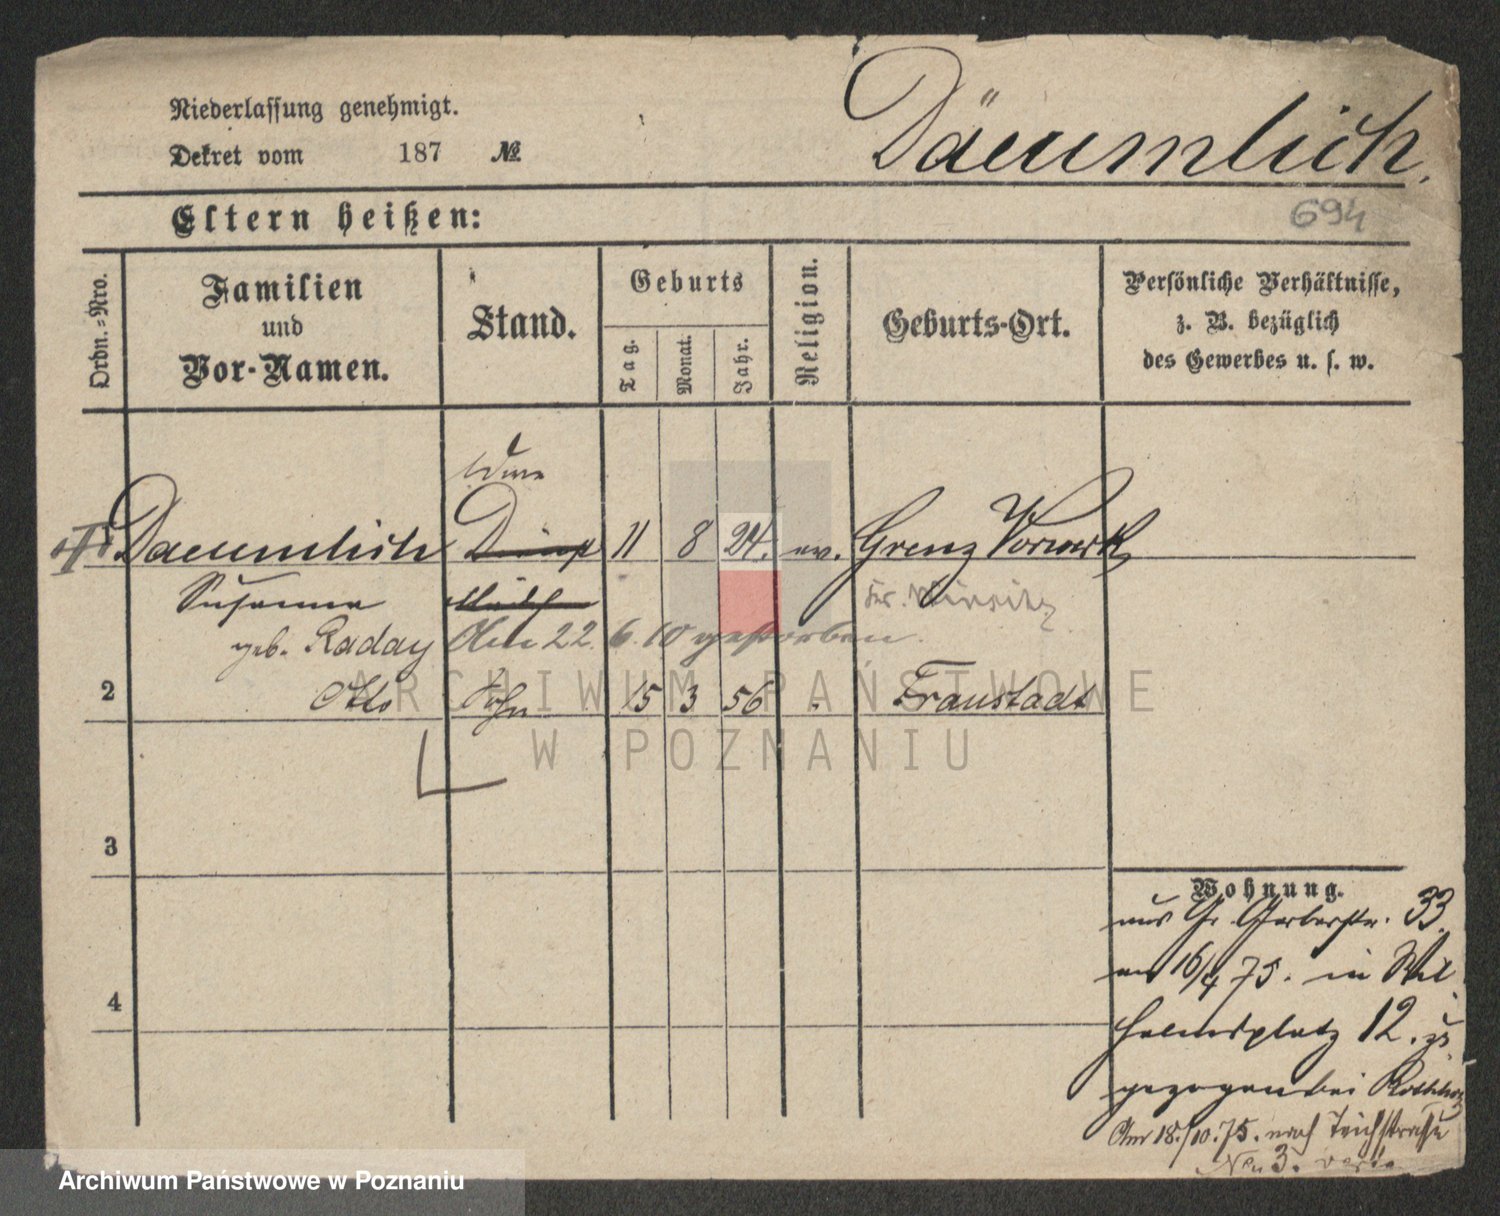 Niederlassung genehmigt.
Dekret vom 187 №
Däumlich.
694
Eltern heißen:
Ordn.-Nro.
Familien
und
Vor-Namen.
Stand.
Geburts
Tag.
Monat.
Jahr.
Religion.
Geburts-Ort.
Persönliche Verhältnisse,
z. B. bezüglich
des Gewerbes u. s. w.
Daeumlich 11 8 24. ev. Grenz Vorwerk
Susanna
geb. Raday Am 22. 6. 10 gestorben.
2 Otto Sohn 15 3 56 Fraustadt
ARCHIWUM PAŃSTWOWE
W POZNANIU
3
Wohnung.
aus Gr Gerberstr. 33
am 16/4 75. in Wil
helmsplatz 12. zu
gezogen bei
4
Am 18./10. 75. nach Teichstraße
3.
Archiwum Państwowe w Poznaniu